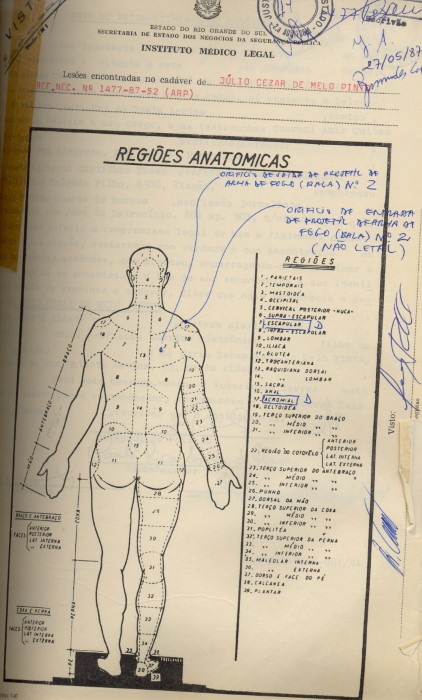 VISTO
ESTADO DO RIO GRANDE DO SUL
SECRETARIA DE ESTADO DOS NEGÓCIOS DA SEGURANÇA PÚBLICA
INSTITUTO MÉDICO LEGAL
27/05/87
Lesões encontradas no cadáver de JÚLIO CEZAR DE MELO PINTO
REF. NEC. Nº 1477-87-52 (ARP)
REGIÕES ANATOMICAS
ORIFÍCIO DE SAÍDA DE PROJETIL DE
ARMA DE FOGO (BALA) Nº 2
ORIFÍCIO DE ENTRADA
DE PROJETIL DE ARMA DE
FOGO (BALA) Nº 2
(NÃO LETAL)
REGIÕES
1_PARIETAIS
2_TEMPORAIS
3_MASTOIDEA
4_OCCIPITAL
5_CERVICAL POSTERIOR -NUCA-
6_SUPRA-ESCAPULAR
7_ESCAPULAR D
8_INFRA-ESCAPULAR
9_LOMBAR
10_ILIACA
11_GLUTEA
12_TROCANTERIANA
13_RAQUIDIANA DORSAL
14_ " LOMBAR
15_SACRA
16_ANAL
17_ACROMIAL D
18_DELTOIDEA
19_TERÇO SUPERIOR DO BRAÇO
20_ " MÉDIO " "
21_ " INFERIOR " "
22_REGIÃO DO COTOVÊLO
ANTERIOR
POSTERIOR
LAT INTERNA
LAT EXTERNA
23_TERÇO SUPERIOR DO ANTEBRAÇO
24_ " MÉDIO " "
25_ " INFERIOR " "
26_PUNHO
27_DORSAL DA MÃO
28_TERÇO SUPERIOR DA COXA
29_ " MÉDIO " "
30_ " INFERIOR " "
31_POPLITEA
32_TERÇO SUPERIOR DA PERNA
33_ " MÉDIO " "
34_ " INFERIOR " "
35_MALEOLAR INTERNA
36_ " EXTERNA
37_DORSO E FACE DO PÉ
38_CALCANEA
39_PLANTAR
Visto:
BRAÇO
ANTEBRAÇO
MÃO
COXA
PERNA
PÉ
BRAÇO E ANTEBRAÇO
FACES
ANTERIOR
POSTERIOR
LAT INTERNA
" EXTERNA
COXA E PERNA
FACES
ANTERIOR
POSTERIOR
LAT INTERNA
" EXTERNA